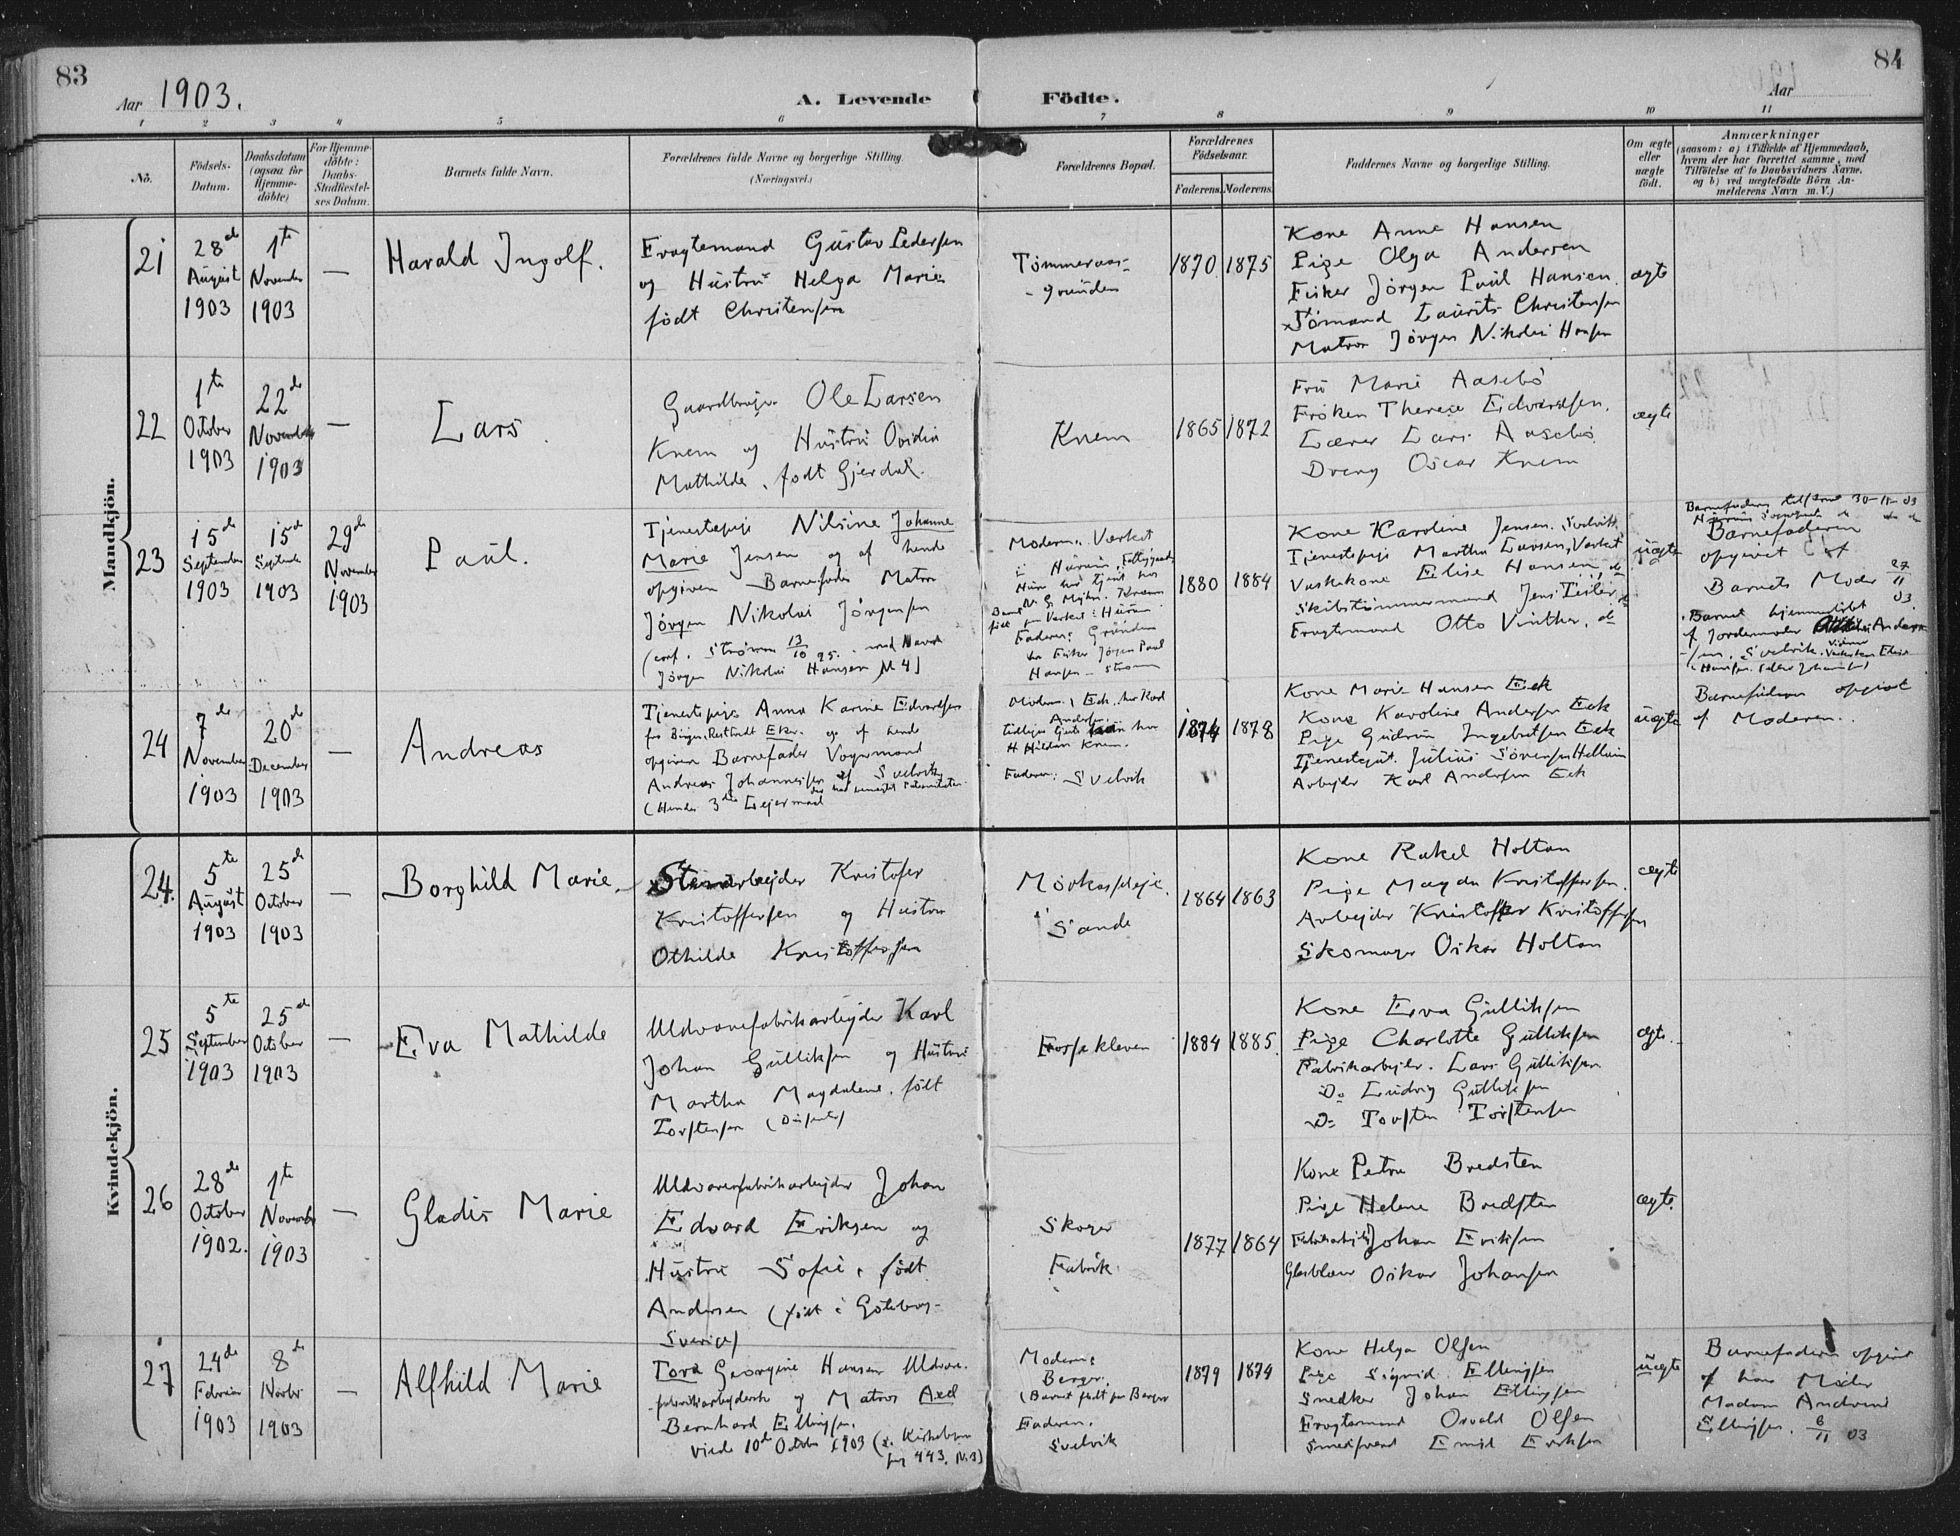 83
Aar 1903.
A. Levende
Födte.
84
Aar
1
2
3
4
5
6
7
8
9
10
11
No.
Födsels-
Datum.
Daabsdatum
(ogsaa for
Hjemme-
döbte)
For Hjemme-
döbte:
Daabs-
Stadfæstel-
ses Datum.
Barnets fulde Navn.
Forældrenes fulde Navne og borgerlige Stilling.
(Næringsvei.)
Forældrenes Bopæl.
Forældrenes
Födselsaar.
Faderens. Moderens.
Faddernes Navne og borgerlige Stilling.
Om ægte
eller
uægte
födt.
Anmærkninger
(saasom: a) i Tilfælde af Hjemmedaab,
hvem der har forrettet samme, med
Tilföielse af to Daabsvidners Navne,
og b) ved uægtefödte Börn An-
melderens Navn m. V.)
Mandkjön.
21
28de
August
1903
1te
November
1903
—
Harald Ingolf.
Fragtemand Gustav Pedersen
og Hustru Helga Marie
født Christensen
Tømmeraas-
- grunden
1870 1875
Kone Anne Hansen
Pige Olga Andersen
Fisker Jörgen Paul Hansen.
Sømand Laurits Christensen
Matros Jörgen Nikolai Hansen
ægte
22
1te
October
1903
22de
November
1903
—
Lars
Gaardbruger Ole Larsen
Knem og Hustru Ovidia
Mathilde, født Gjerdal.
Knem
1865 1872
Fru Marie Aasebø
Frøken Therese Edvardsen.
Lærer Lars Aasebø
Dreng Oscar Knem
ægte
23
15de
September
1903
15de
Septembr
1903
29de
November
1903
Paul.
Tjenestepige Nilsine Johanne
Marie Jensen og af hende
opgiven Barnefader Matros
Jörgen Nikolai Jörgensen
(conf. Strømm 13/10 95. med Navn
Jörgen Nikolai Hansen N 4)
Moderen: Værket
i Hurum,
Hun har tjent hos
Knem
Barnet født paa Værket i Hurum
Faderen: Grunden
hos Fisker Jörgen Paul
Hansen - Strømm
1880 1884
Kone Karoline Jensen. Svelvik
Tjenestepige Martha Larsen, Værket
Vaskekone Elise Hansen, do
Skibstømmermand Jens Teiler do
Fragtemand Otto Vinther, do
uægte
Barnefaderen tilskrevet 30-11-03
Barnefaderen
opgivet af
Barnets Moder 27/11 03.
Barnet hjemmedøbt
af Jordemoder Andersen
Svelvik. Vidner
Elise
Hansen
24
7de
November
1903
20de
December
1903
—
Andreas
Tjenestepige Anna Karine Edvardsen
og af hende
opgiven Barnefader Vognmand
Andreas Johannessen af Svelvik,
(Hendes 3die Leiermaal
Moderen: Eck, hos Karl
Andersen
tidligere tjent hos
H Hilden Knem.
Faderen: Svelvik
1874 1878
Kone Marie Hansen Eek
Kone Karoline Andersen Eek
Pige Gudrun Ingebretsen Eek
Tjenestegut Julius Sörensen Hellum
Arbejder Karl Andersen Eek
uægte
Barnefaderen opgivet
af Moderen.
Kvindekjön.
24.
5te
August
1903
25de
October
1903
—
Borghild Marie.
Stenarbejder Kristofer
Kristoffersen og Hustru
Othilde Kristoffersen
Sande
1864 1863
Kone Rakel Holtan
Pige Magda Kristoffersen.
Arbejder Kristoffer Kristoffersen
Skomager Oskar Holtan
ægte
25
5te
September
1903
25de
October
1903
—
Eva Mathilde
Uldvarefabrikarbejder Karl
Johan Gulliksen og Hustru
Martha Magdalene, født
Torstensen
Fossekleven
1884 1885.
Kone Eva Gulliksen
Pige Charlotte Gulliksen
Fabrikarbejder. Lars Gulliksen
Do Ludvig Gulliksen
Do Torsten Torstensen
ægte.
26
28de
October
1902.
1te
November
1903
—
Gladis Marie
Uldvarefabrikarbejder Johan
Edvard Eriksen og
Hustru Sofie, født
Andersen (født i Göteborg-
Sverige)
Skoger
Fabrik
1877 1864
Kone Petra Bredsten
Pige Helene Bredsten
Fabrikarbejder Johan Eriksen
Glasblæser Oskar Johansen
ægte.
27
24de
Februar
1903
8de
Novbr
1903
—
Alfhild Marie
Tora Georgine Hansen Uldvare-
fabrikarbejderske og Matros Axel
Bernhard Ellingsen.
viede 10de October 1903 (se Kirkebogen
pag 443. N. 3)
Moderen:
Berger.
(Barnet født paa Berger
Faderen.
Svelvik
1879 1874
Kone Helga Olsen
Pige Sigrid Ellingsen
Snedker Johan Ellingsen
Fragtemand Osvald Olsen
Smedsvend Emil Eriksen
uægte
Barnefaderen opgivet
af hans Moder
Madam Andrine
Ellingsen. 8/11 03